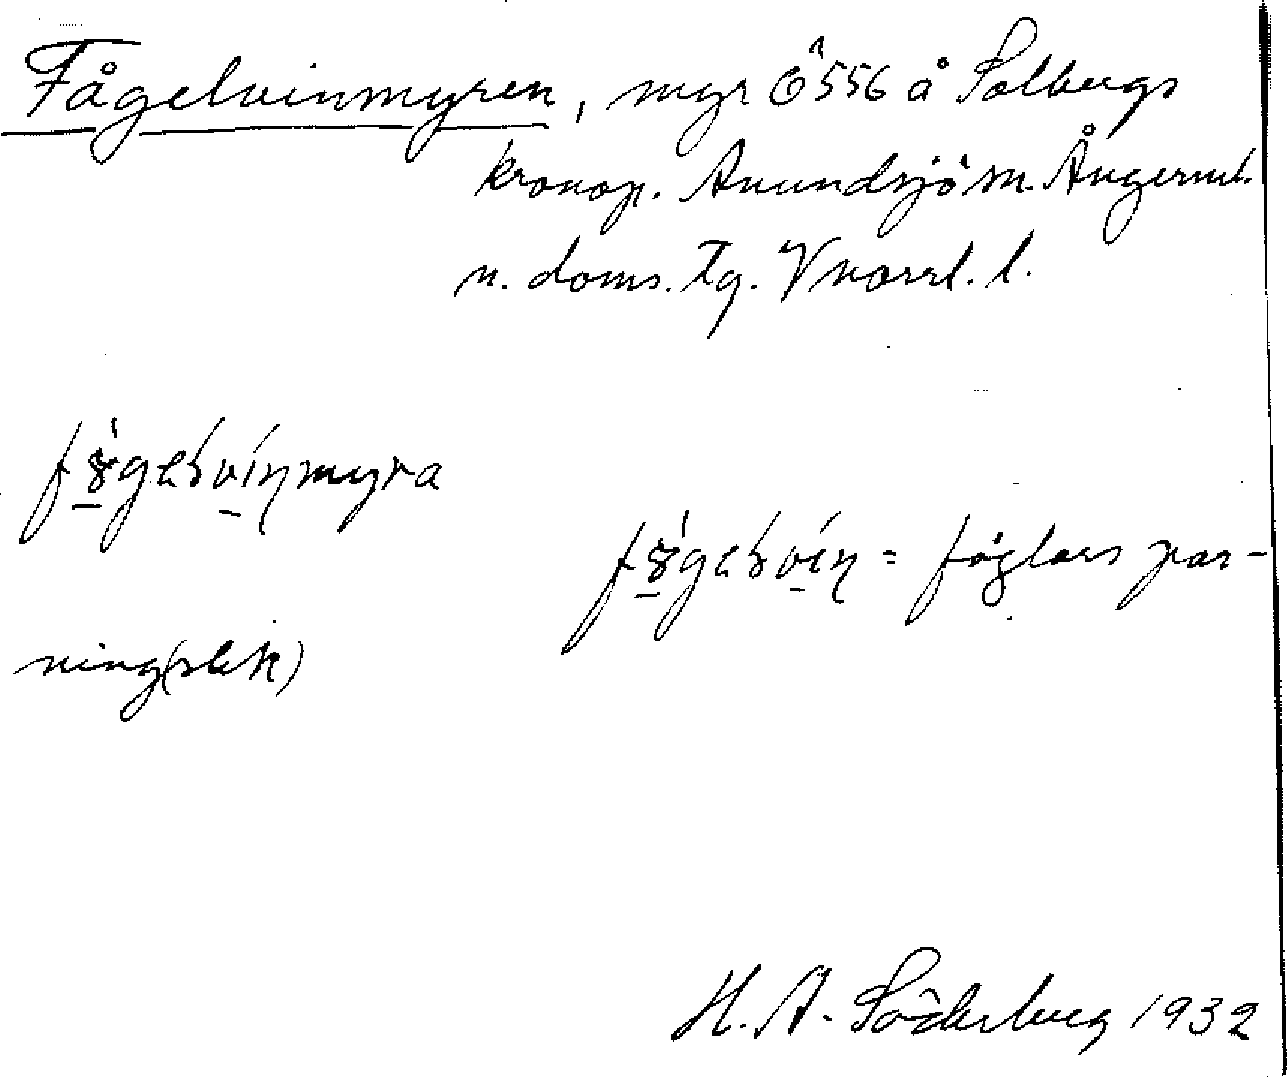 Fågelvinmyren, myr Ö 556 å Solbergs
kronop. Anundsjö sn. Ångerml.
n. doms. tg. Vnorrl. l.
fåglars par-
ning(slek)
H. A. Söderberg 1932